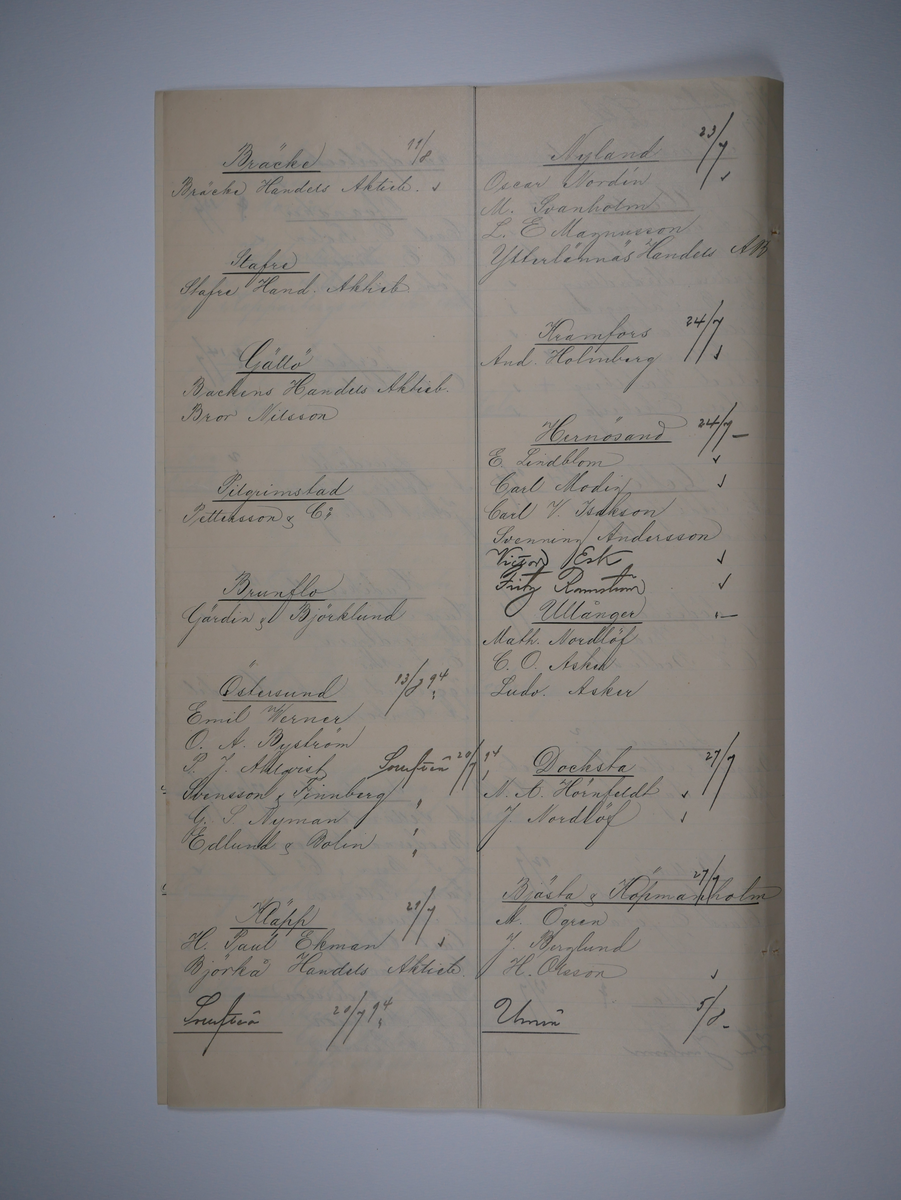 Bräcke 11/8
Bräcke Handels Aktieb.
Stafre
Stafre Hand. Aktieb
Gällö
Backens Handels Aktieb.
Bror Nilsson
Pilgrimstad
Pettersson & C:
Brunflo
Gärdin & Björklund
Östersund 13/8 94
Emil Werner
O. A. Byström
P. J. Ahlqvist 20/7 94
Svensson & Finnberg "
G. S. Nyman "
Edlund & Bolin "
Kläpp 21/7
H. Paul Ekman
Björkå Handels Aktieb.
20/7 94
Nyland 23/7
Oscar Nordin
M. Svanholm
L. E Magnusson
Ytterlännäs Handels AB
Kramfors 24/7
And. Holmberg
Hernösand 24/7 –
E. Lindblom
Carl Modin
Carl V. Isakson
Svenning Andersson
Victor Erk
Fritz Ramström
Ullånger –
Math. Nordlöf
C. O. Asker
Ludv. Asker
Docksta 27/7
N. A. Hörnfeldt
J Nordlöf
Bjästa & Köpmanholm 27/7
N. Ögren
J. Berglund
H. Olsson
Umeå 5/8 –